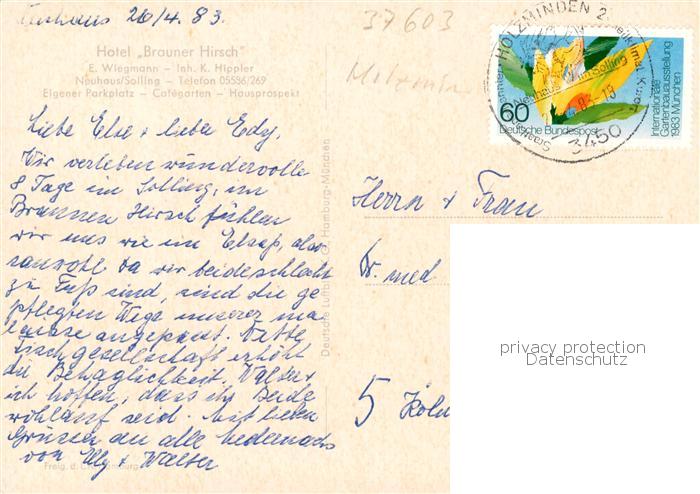 Neuhaus 26/4. 83.
37603
Hotel „Brauner Hirsch"
E. Wiegmann — Inh. K. Hippler
Neuhaus/Solling — Telefon 05536/269
Eigener Parkplatz — Cafégarten — Hausprospekt
HOLZMINDEN 2
Neuhaus im Solling
3450
60
Deutsche Bundespost
Internationale
Gartenbauausstellung
1983 München
Liebe Else + lieber Edy,
Wir verleben wundervolle
8 Tage im Solling, im
Braunen Hirsch fühlen
wir uns wie im Elsaß, also
sauwohl. Da wir beide schlecht
zu Fuß sind, sind die ge
pflegten Wege unserer ma
laise angepasst. Nette
Tischgesellschaft erhöht
die Behaglichkeit. Walter +
ich hoffen, dass ihr Beide
wohlauf seid. Mit lieben
Grüssen an alle
von + Walter
Herrn + Frau
Dr. med
5 Köln
privacy protection
Datenschutz